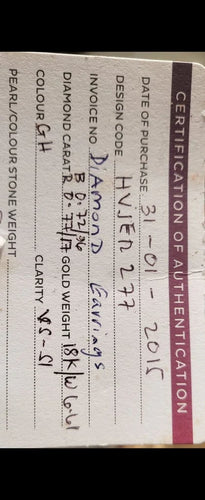 CERTIFICATION OF AUTHENTICATION
DATE OF PURCHASE 31-01-2015
DESIGN CODE HVJER 277
INVOICE NO Diamond Earrings
B D: 72/.96
DIAMOND CARAT R D: 77/ GOLD WEIGHT 18K/W 6.61
COLOUR GH CLARITY VS-SI
PEARL/COLOUR STONE WEIGHT